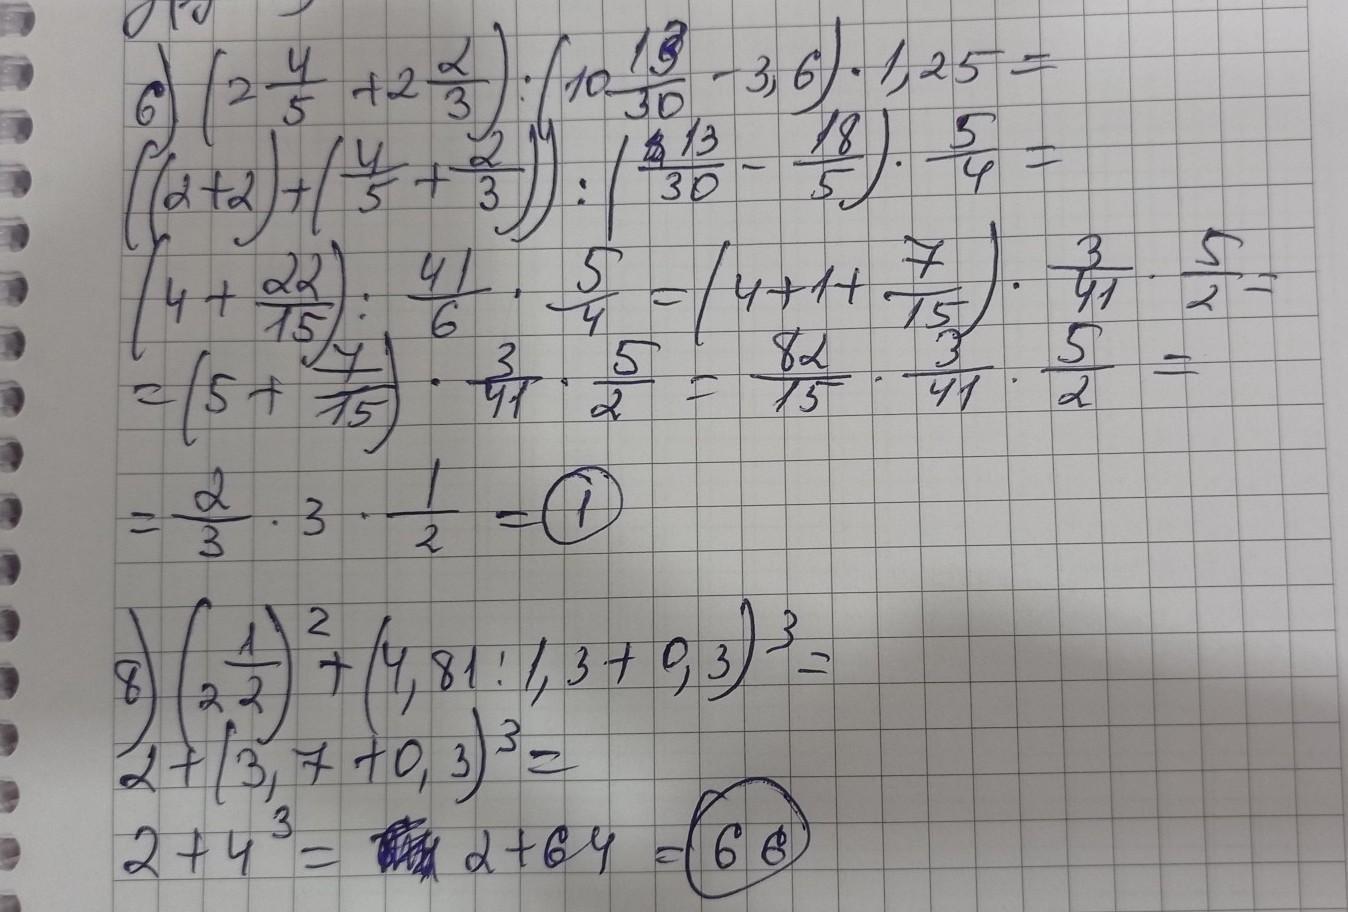 6) (2 4/5 + 2 2/3) : (10 13/30 - 3,6) · 1,25 =
((2+2)+(4/5 + 2/3)) : (313/30 - 18/5) · 5/4 =
(4 + 22/15) : 41/6 · 5/4 = (4+1+ 7/15) · 3/41 · 5/2 =
= (5 + 7/15) · 3/41 · 5/2 = 82/15 · 3/41 · 5/2 =
= 2/3 · 3 · 1/2 = 1
8) (2 1/2)² + (4,81 : 1,3 + 0,3)³ =
2 + (3,7 + 0,3)³ =
2 + 4³ = 2 + 64 = 66